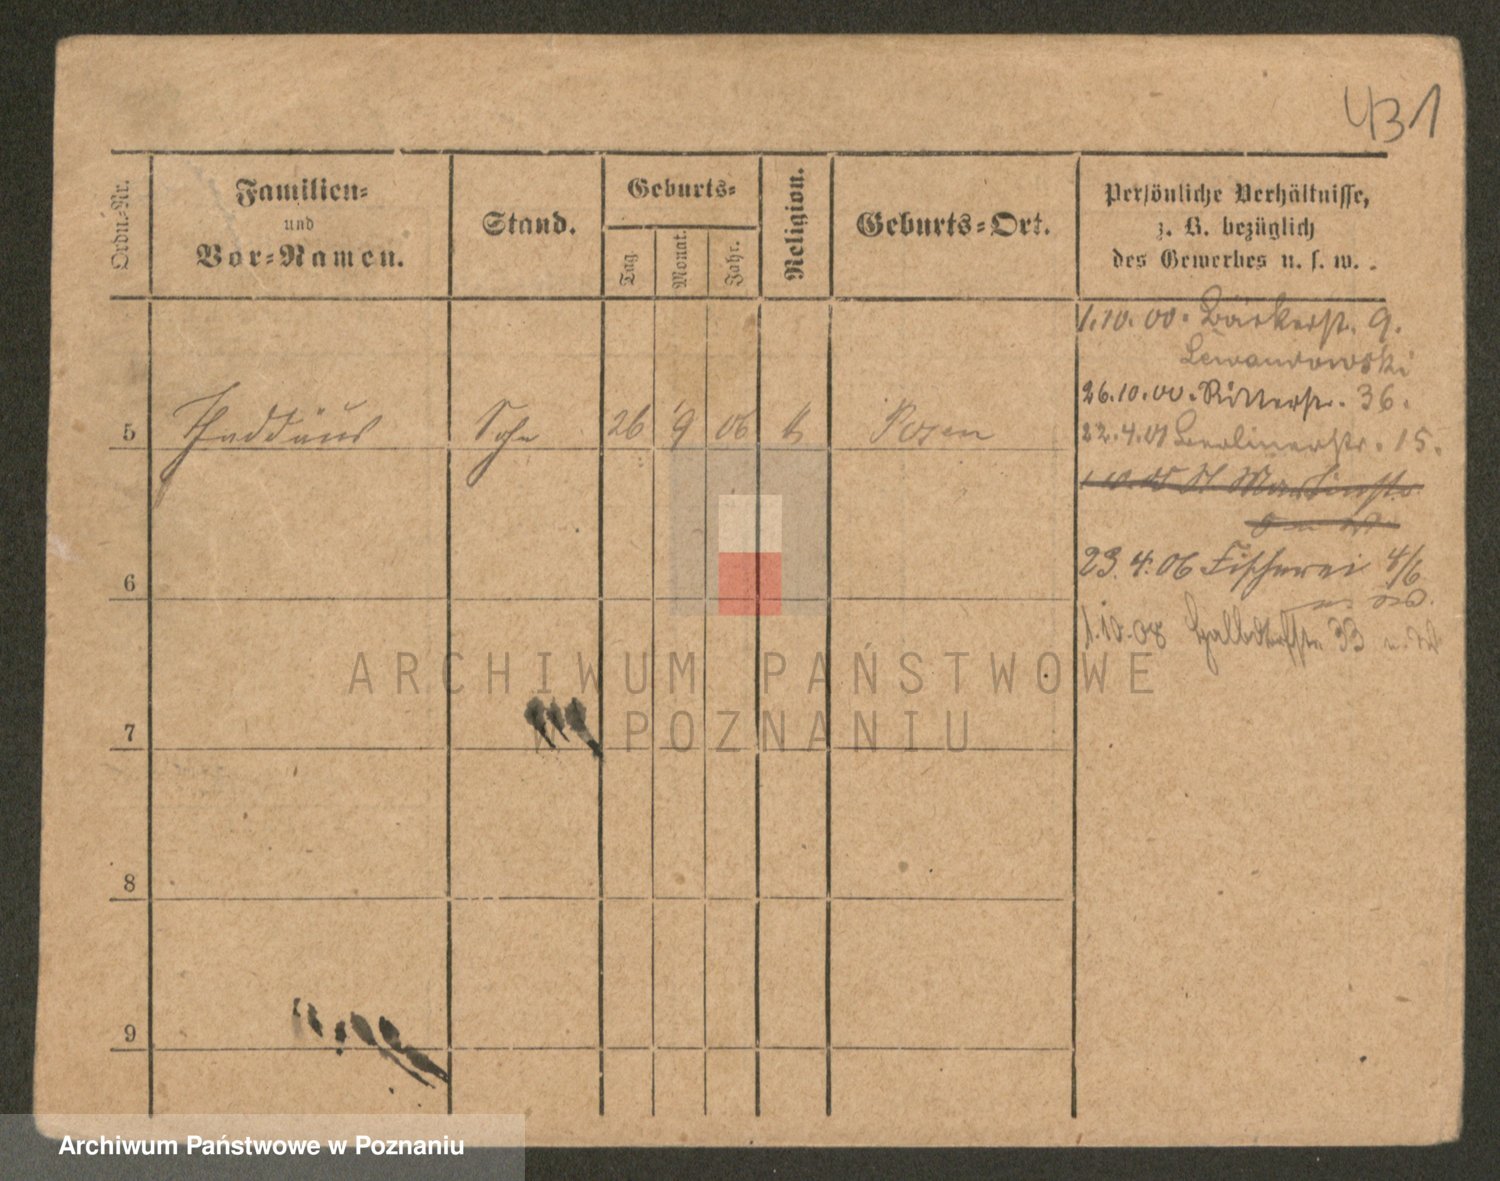 431
Ordn.-Nr.
Familien-
und
Vor-Namen.
Stand.
Geburts-
Tag.
Monat.
Jahr.
Religion.
Geburts-Ort.
Persönliche Verhältnisse,
z. B. bezüglich
des Gewerbes u. s. w.
1.10.00. Bäckerst. 9.
Lewandowski
26.10.00. Ritterstr. 36.
22.4.01 Berlinerstr. 15.
5 Thaddäus Sohn 26 9 06 k Posen
St. Martinstr.
6
23.4.06 Fischerei 4/6
1.10.08 Halbdorfstr. 33
ARCHIWUM PAŃSTWOWE
W POZNANIU
7
8
9
Archiwum Państwowe w Poznaniu